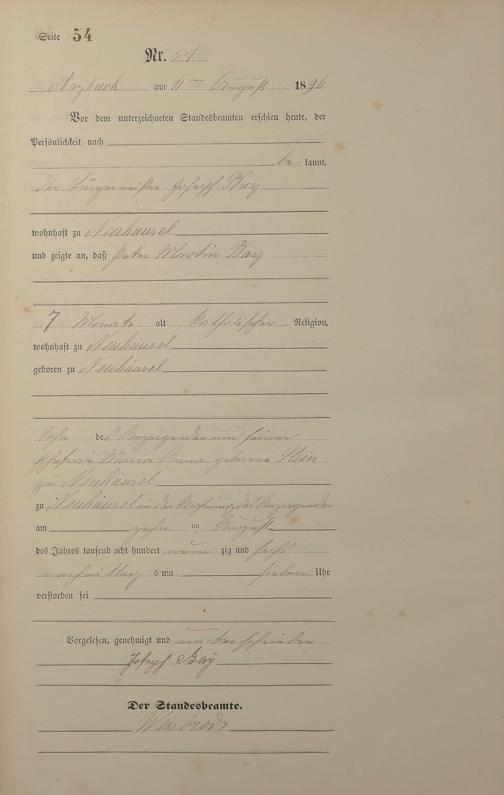 Seite 54
Nr. 54
Arzbach am 11ten August 1896
Vor dem unterzeichneten Standesbeamten erschien heute, der
Persönlichkeit nach
be kannt,
der Bürgermeister Joseph Bay
wohnhaft zu Neuhäusel
und zeigte an, daß Peter Martin Bay
7 Monate alt katholischer Religion,
wohnhaft zu Neuhäusel
geboren zu Neuhäusel
Sohn des Anzeigenden und seiner
Ehefrau Maria Anna geborene Stein
zu Neuhäusel
zu Neuhäusel in der Wohnung des Anzeigenden
am zehn ten August
des Jahres tausend acht hundert neun zig und sechs
nachmittags um sieben Uhr
verstorben sei
Vorgelesen, genehmigt und unterschrieben
Joseph Baÿ
Der Standesbeamte.